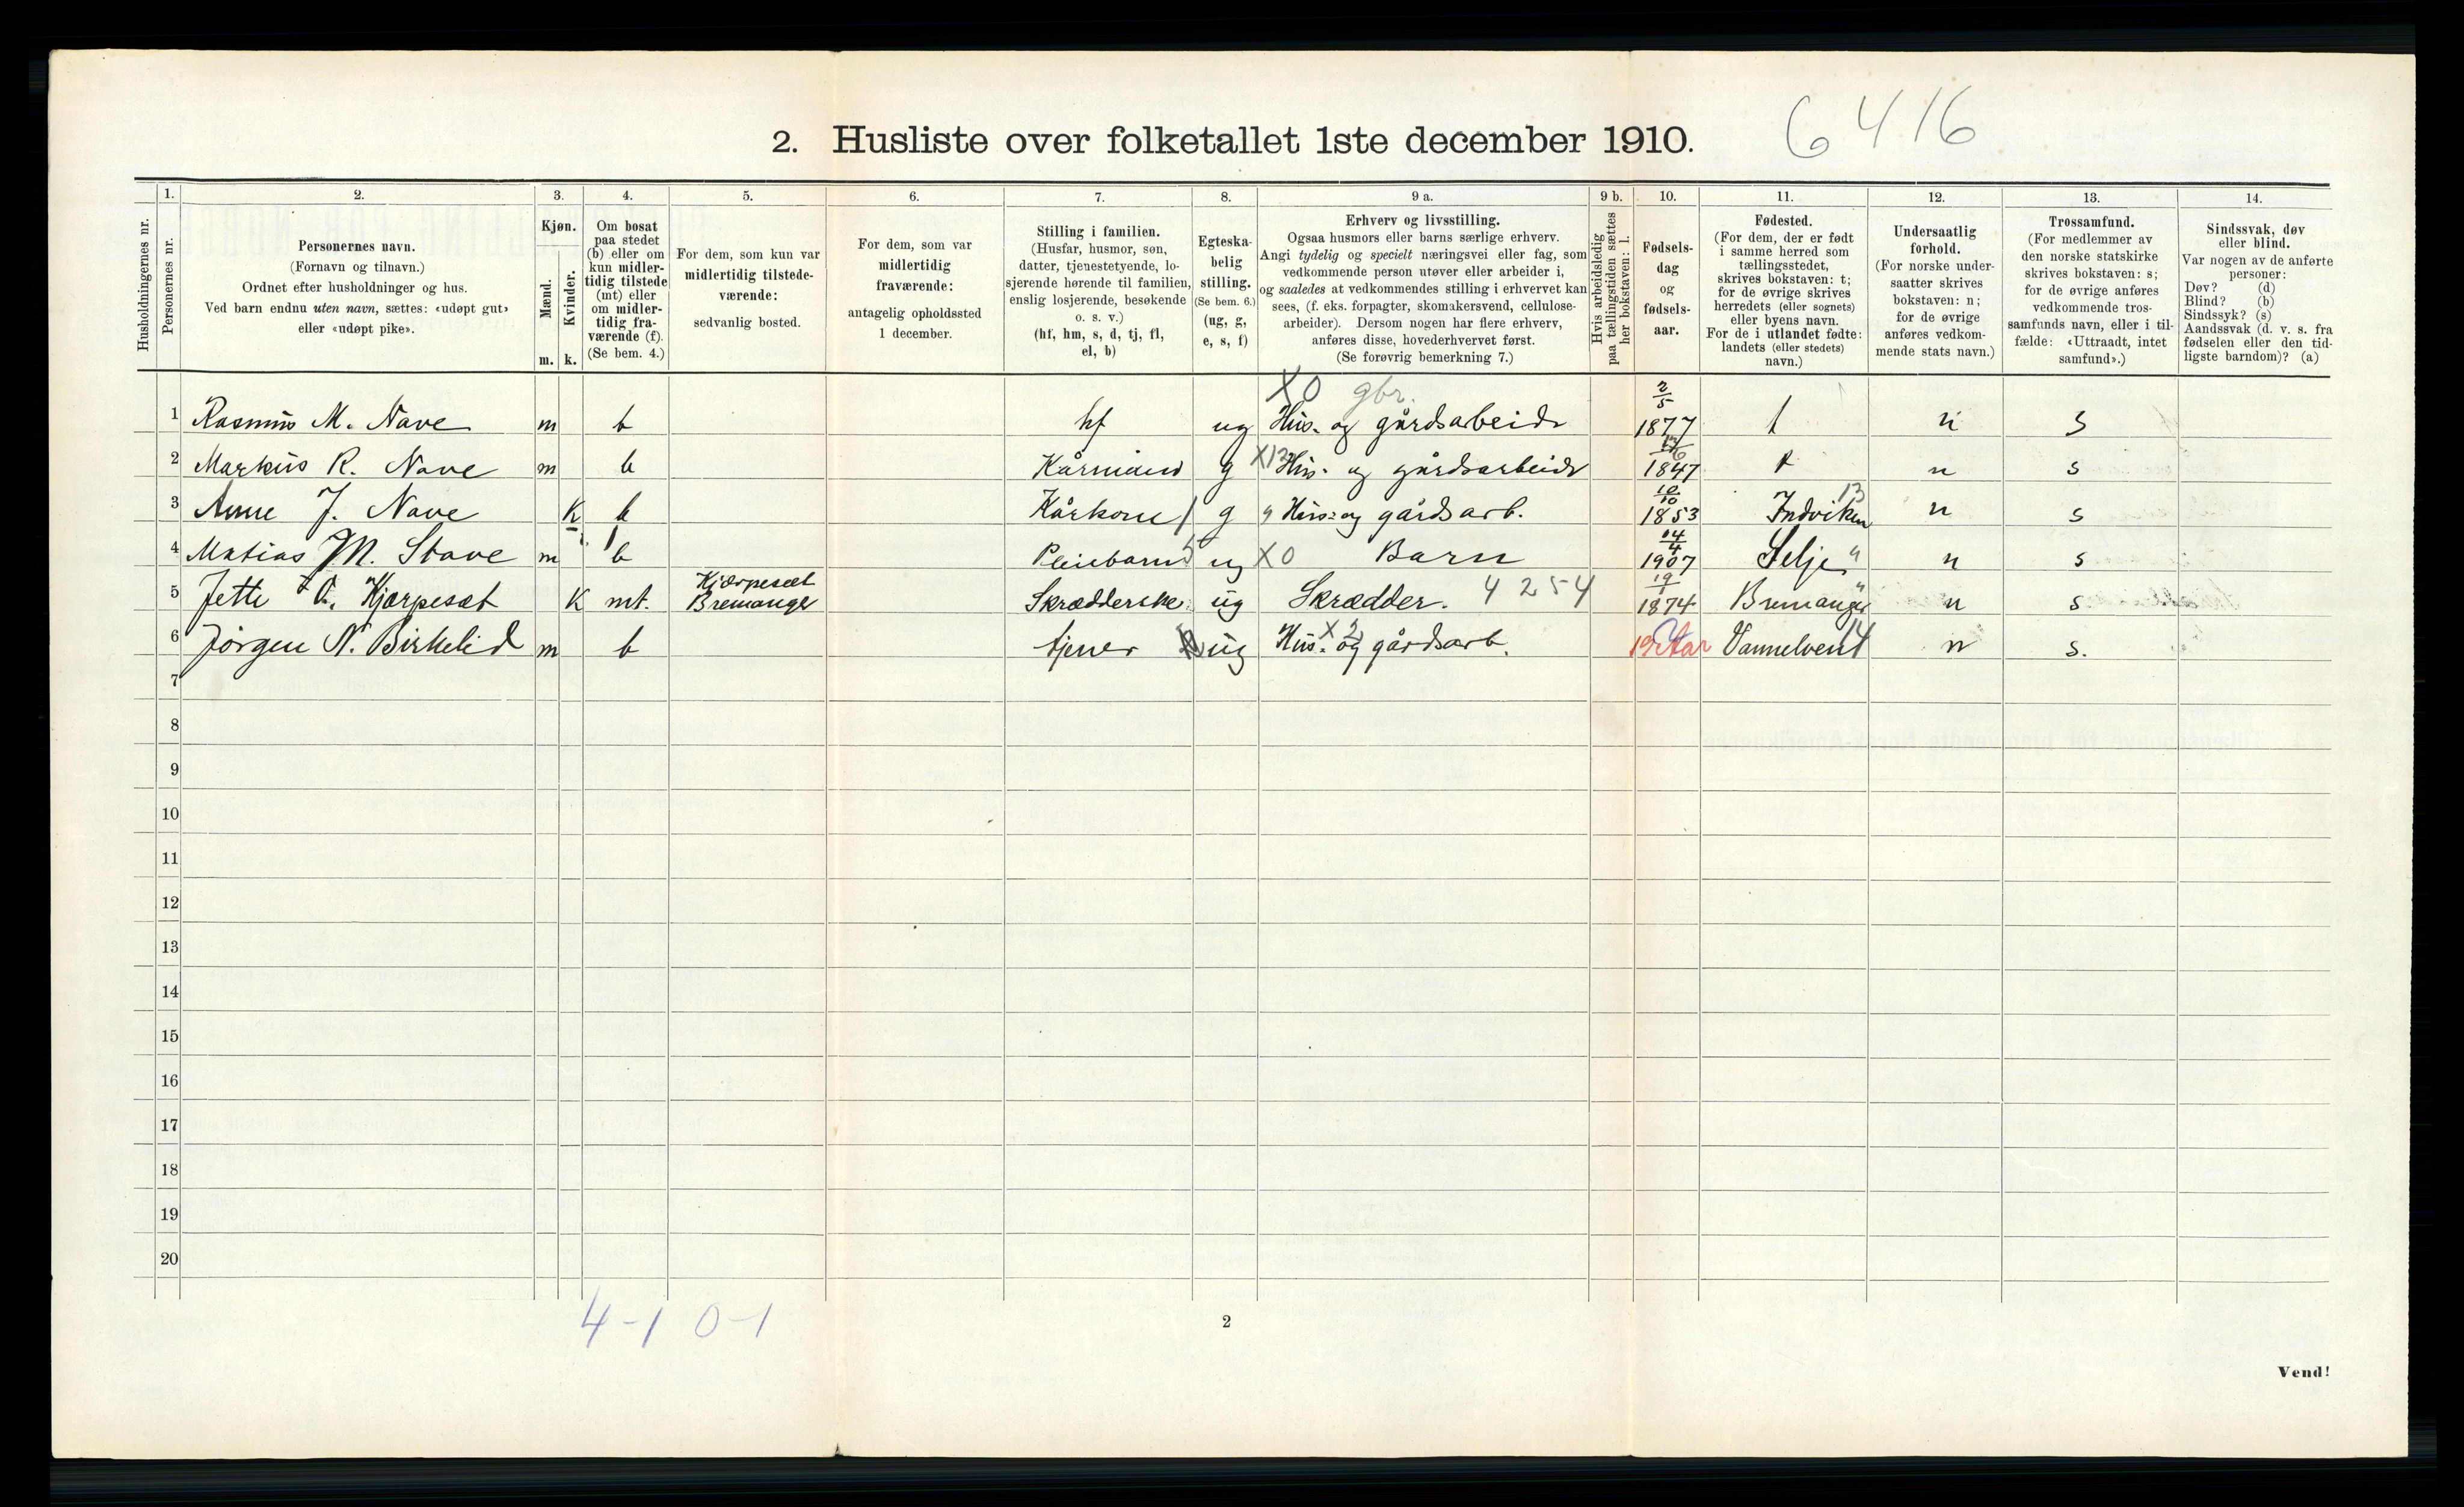 6416
2. Husliste over folketallet 1ste december 1910.
Husholdningernes nr.
1. Personernes nr.
2. Personernes navn. (Fornavn og tilnavn.) Ordnet efter husholdninger og hus. Ved barn endnu uten navn, sættes: «udøpt gut» eller «udøpt pike».
3. Kjøn. Mænd. m. Kvinder. k.
4. Om bosat paa stedet (b) eller om kun midlertidig tilstede (mt) eller om midlertidig fraværende (f). (Se bem. 4.)
5. For dem, som kun var midlertidig tilstedeværende: sedvanlig bosted.
6. For dem, som var midlertidig fraværende: antagelig opholdssted 1 december.
7. Stilling i familien. (Husfar, husmor, søn, datter, tjenestetyende, losjerende hørende til familien, enslig losjerende, besøkende o. s. v.) (hf, hm, s, d, tj, fl, el, b)
8. Egteskabelig stilling. (Se bem. 6.) (ug, g, e, s, f)
9 a. Erhverv og livsstilling. Ogsaa husmors eller barns særlige erhverv. Angi tydelig og specielt næringsvei eller fag, som vedkommende person utøver eller arbeider i, og saaledes at vedkommendes stilling i erhvervet kan sees, (f. eks. forpagter, skomakersvend, cellulosearbeider). Dersom nogen har flere erhverv, anføres disse, hovederhvervet først. (Se forøvrig bemerkning 7.)
9 b. Hvis arbeidsledig paa tællingstiden sættes her bokstaven: l.
10. Fødselsdag og fødselsaar.
11. Fødested. (For dem, der er født i samme herred som tællingsstedet, skrives bokstaven: t; for de øvrige skrives herredets (eller sognets) eller byens navn. For de i utlandet fødte: landets (eller stedets) navn.)
12. Undersaatlig forhold. (For norske undersaatter skrives bokstaven: n; for de øvrige anføres vedkommende stats navn.)
13. Trossamfund. (For medlemmer av den norske statskirke skrives bokstaven: s; for de øvrige anføres vedkommende trossamfunds navn, eller i tilfælde: «Uttraadt, intet samfund».)
14. Sindssvak, døv eller blind. Var nogen av de anførte personer: Døv? (d) Blind? (b) Sindssyk? (s) Aandssvak (d. v. s. fra fødselen eller den tidligste barndom)? (a)
X0 gbr.
1 Rasmus M. Nave m b hf ug Hus- og gårdsarbeide 2/5 1877 t n s
2 Markus R. Nave m b Kårmand g Hus- og gårdsarbeide 1847 t n s
3 Anne J. Nave K b Kårkone g Hus- og gårdsarb. 10/10 1853 Indviken 13 n s
4 Matias M. Stave m b Pleiebarn ug X0 Barn 14/4 1907 Selje " n s
5 Jette A. Kjærpesæt K mt. Kjærpesæt Bremanger Skrædderske ug Skrædder. 4 254 1874 Bremanger " n s
6 Jörgen N. Birkelid m b tjener ug Hus- og gårdsarb. X 2 14 n s.
7
8
9
10
11
12
13
14
15
16
17
18
19
20
4-1 0-1
2
Vend!